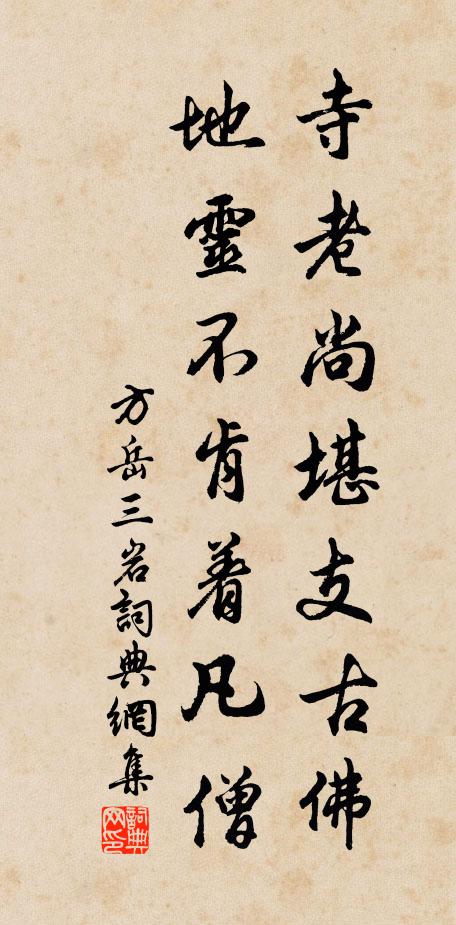 寺老尚堪支古佛
地靈不肯着凡僧
方岳三岩詞典網集
詞典网印